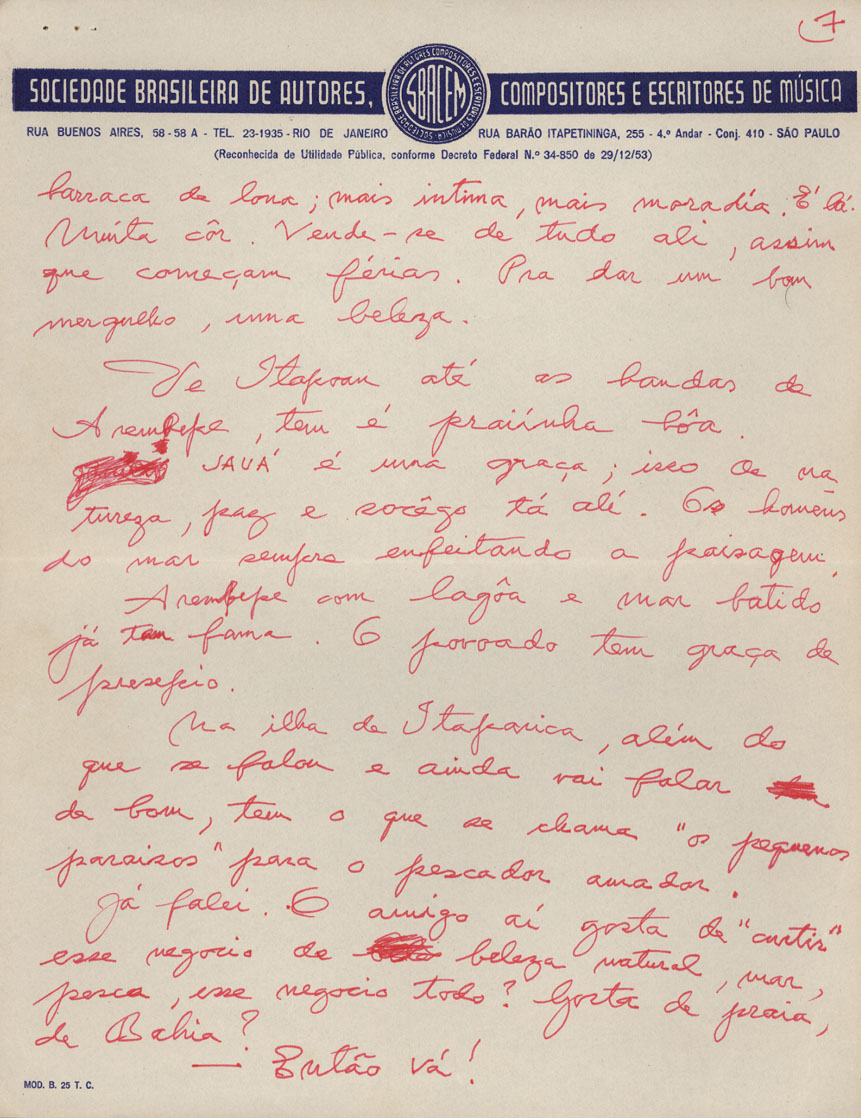 7
SOCIEDADE BRASILEIRA DE AUTORES, SBACEM COMPOSITORES E ESCRITORES DE MÚSICA
RUA BUENOS AIRES, 58-58 A - TEL. 23-1935 - RIO DE JANEIRO RUA BARÃO ITAPETININGA, 255 - 4.º Andar - Conj. 410 - SÃO PAULO
(Reconhecida de Utilidade Pública, conforme Decreto Federal N.º 34-850 de 29/12/53)
barraca de lona; mais intima, mais moradía. É lá.
Muita côr. Vende-se de tudo ali, assim
que começam férias. Pra dar um bom
mergulho, uma beleza.
De Itapoan até as bandas de
Arembepe, tem é prainha bôa.
JAUÁ é uma graça; isso de na
tureza, paz e socêgo tá ali. Os homens
do mar sempre enfeitando a paisagem.
Arembepe com lagôa e mar batido
já tem fama. O povoado tem graça de
presepio.
Na ilha de Itaparica, além do
que se falou e ainda vai falar
de bom, tem o que se chama "os pequenos
paraizos" para o pescador amador.
Já falei. O amigo aí gosta de "curtir"
esse negocio de beleza natural, mar,
pesca, esse negocio todo? Gosta de praia,
de Bahia?
— Então vá!
MOD. B. 25 T. C.